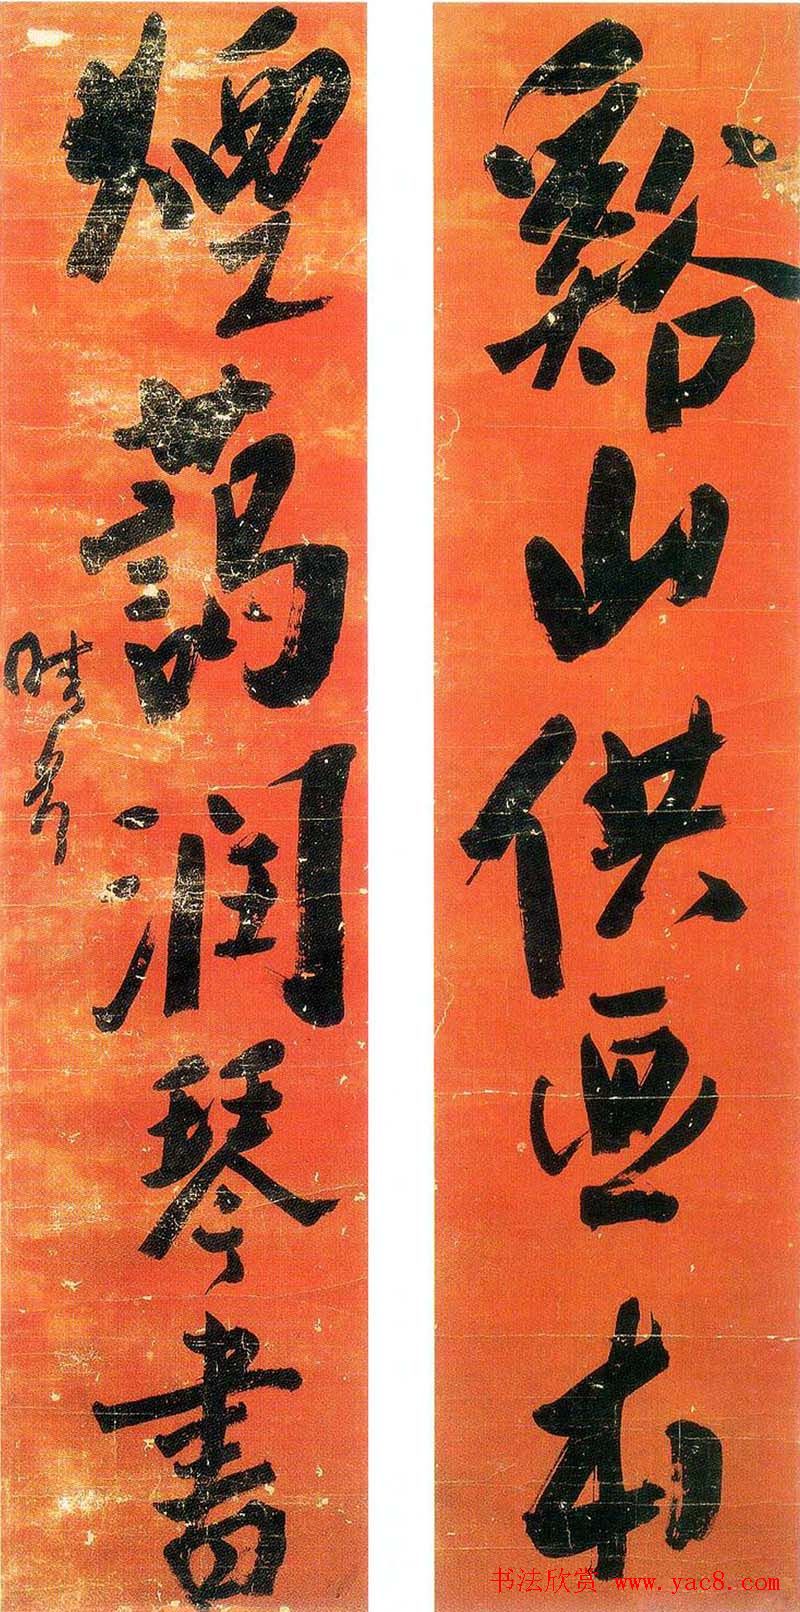 谿山供画本
煙藹润琴書
书法欣赏 www.yac8.com